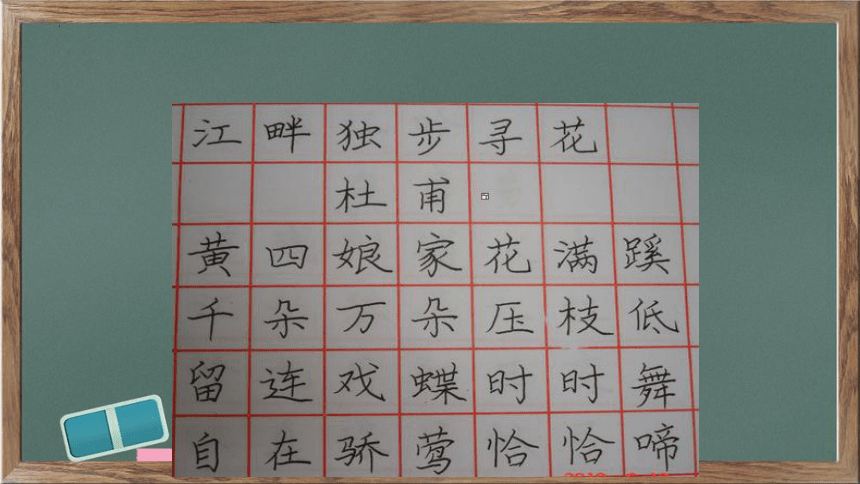 江畔独步寻花
杜甫
黄四娘家花满蹊
千朵万朵压枝低
留连戏蝶时时舞
自在骄莺恰恰啼